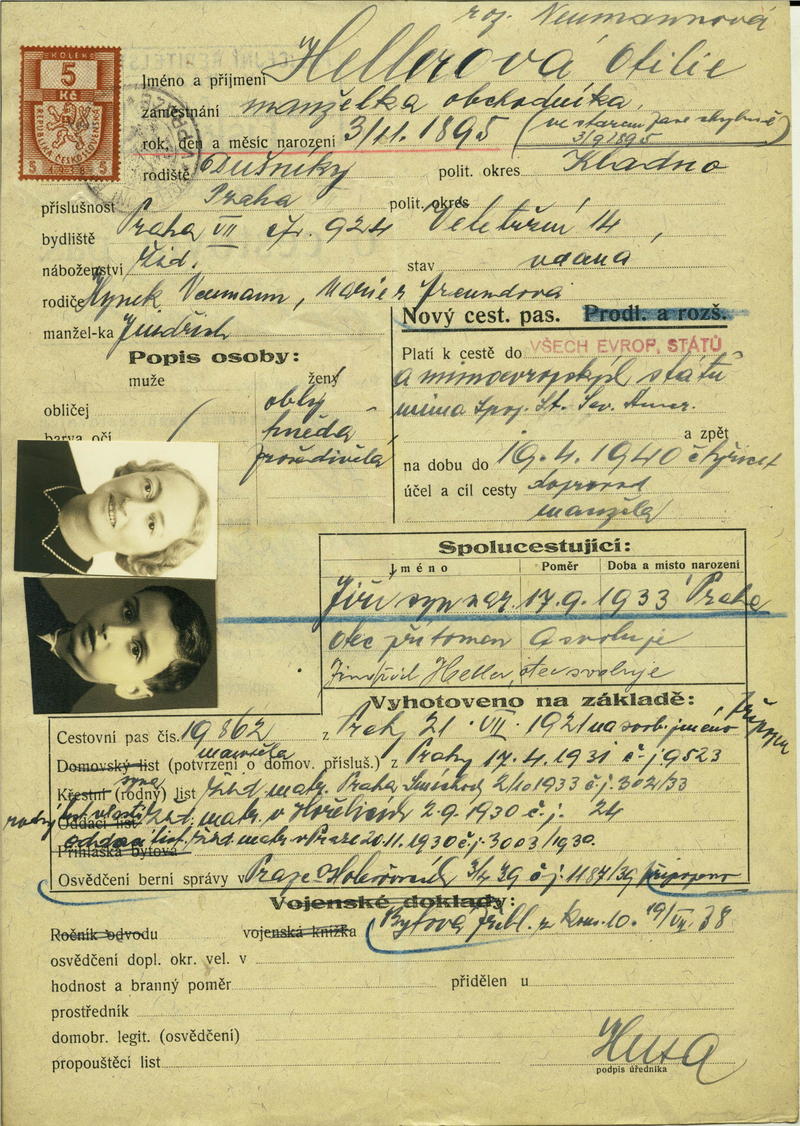 roz. Neumannová
KOLEK
5
Kč
REPUBLIKA ČESKOSLOVENSKÁ
5 1938 5
Jméno a příjmení Hellerová Otilie
zaměstnání manželka obchodníka,
rok, den a měsíc narození 3/11. 1895 (ve starém pase chybně 3/9 1895
rodiště Dušníky polit. okres Kladno
příslušnost Praha polit. okres
bydliště Praha VII čp. 924 Veletržní 14,
náboženství žid. stav vdaná
rodiče Hynek Neumann, Marie r. Freundová
manžel-ka Jindřich
Nový cest. pas. Prodl. a rozš.
Popis osoby:
muže ženy
obličej oblý
barva očí hnědá
prošedivělá
Platí k cestě do VŠECH EVROP. STÁTŮ
a mimoevropských států
mimo Spoj. St. Sev. Amer.
a zpět
na dobu do 19. 4. 1940 čtyřicet
účel a cíl cesty doprovod
manžela
Spolucestující:
Jméno Poměr Doba a místo narození
Jiří syn nar. 17.9.1933 Praha
otec přítomen a svoluje
Jindřich Heller, otec svoluje
Vyhotoveno na základě:
Cestovní pas čís. 19862 z Prahy 21. VII. 1921 na svob. jméno
manžela
Domovský list (potvrzení o domov. přísluš.) z Prahy 17.4.1931 č.j. 9523
syna
Křestní (rodný) list žid. matr. Praha Smíchov 2/10 1933 č.j. 302/33
rodný list vlastní žid. matr. v Hořelicích 2.9.1930 č.j. 24
Oddací list
oddací list. žid. matr. v Praze 20.11.1930 č.j. 3003/1930.
Přihláška bytová
Osvědčení berní správy v Praze Holešovicích 3/4 39 č.j. 1187/39 připojeno
Vojenské doklady:
Ročník odvodu vojenská knížka Bytová přihl. z kom. 10. 19/VII. 38
osvědčení dopl. okr. vel. v
hodnost a branný poměr přidělen u
prostředník
domobr. legit. (osvědčení)
propouštěcí list
podpis úředníka